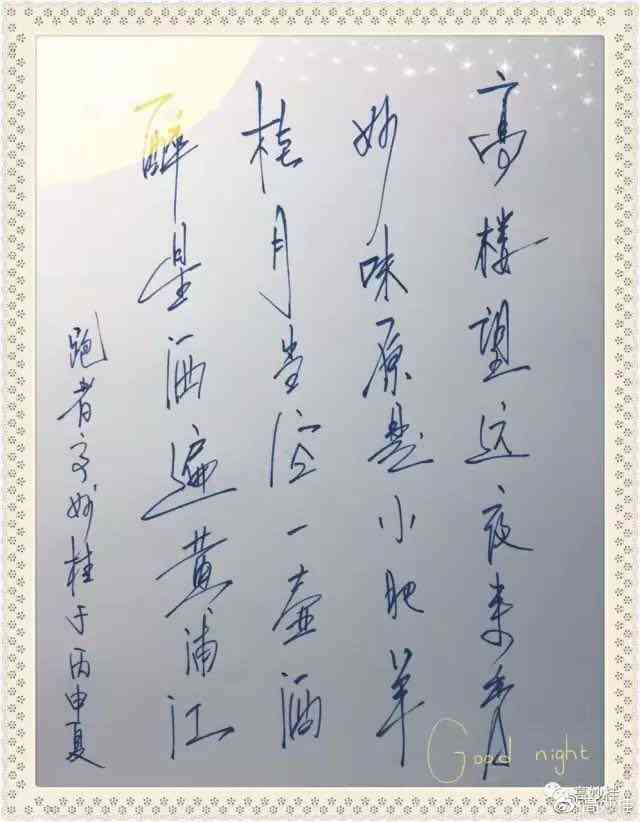 高楼望远夜来香
妙味原是小肥羊
桂月当空一壶酒
醉星洒遍黄浦江
跑者高妙桂于丙申夏
Good night